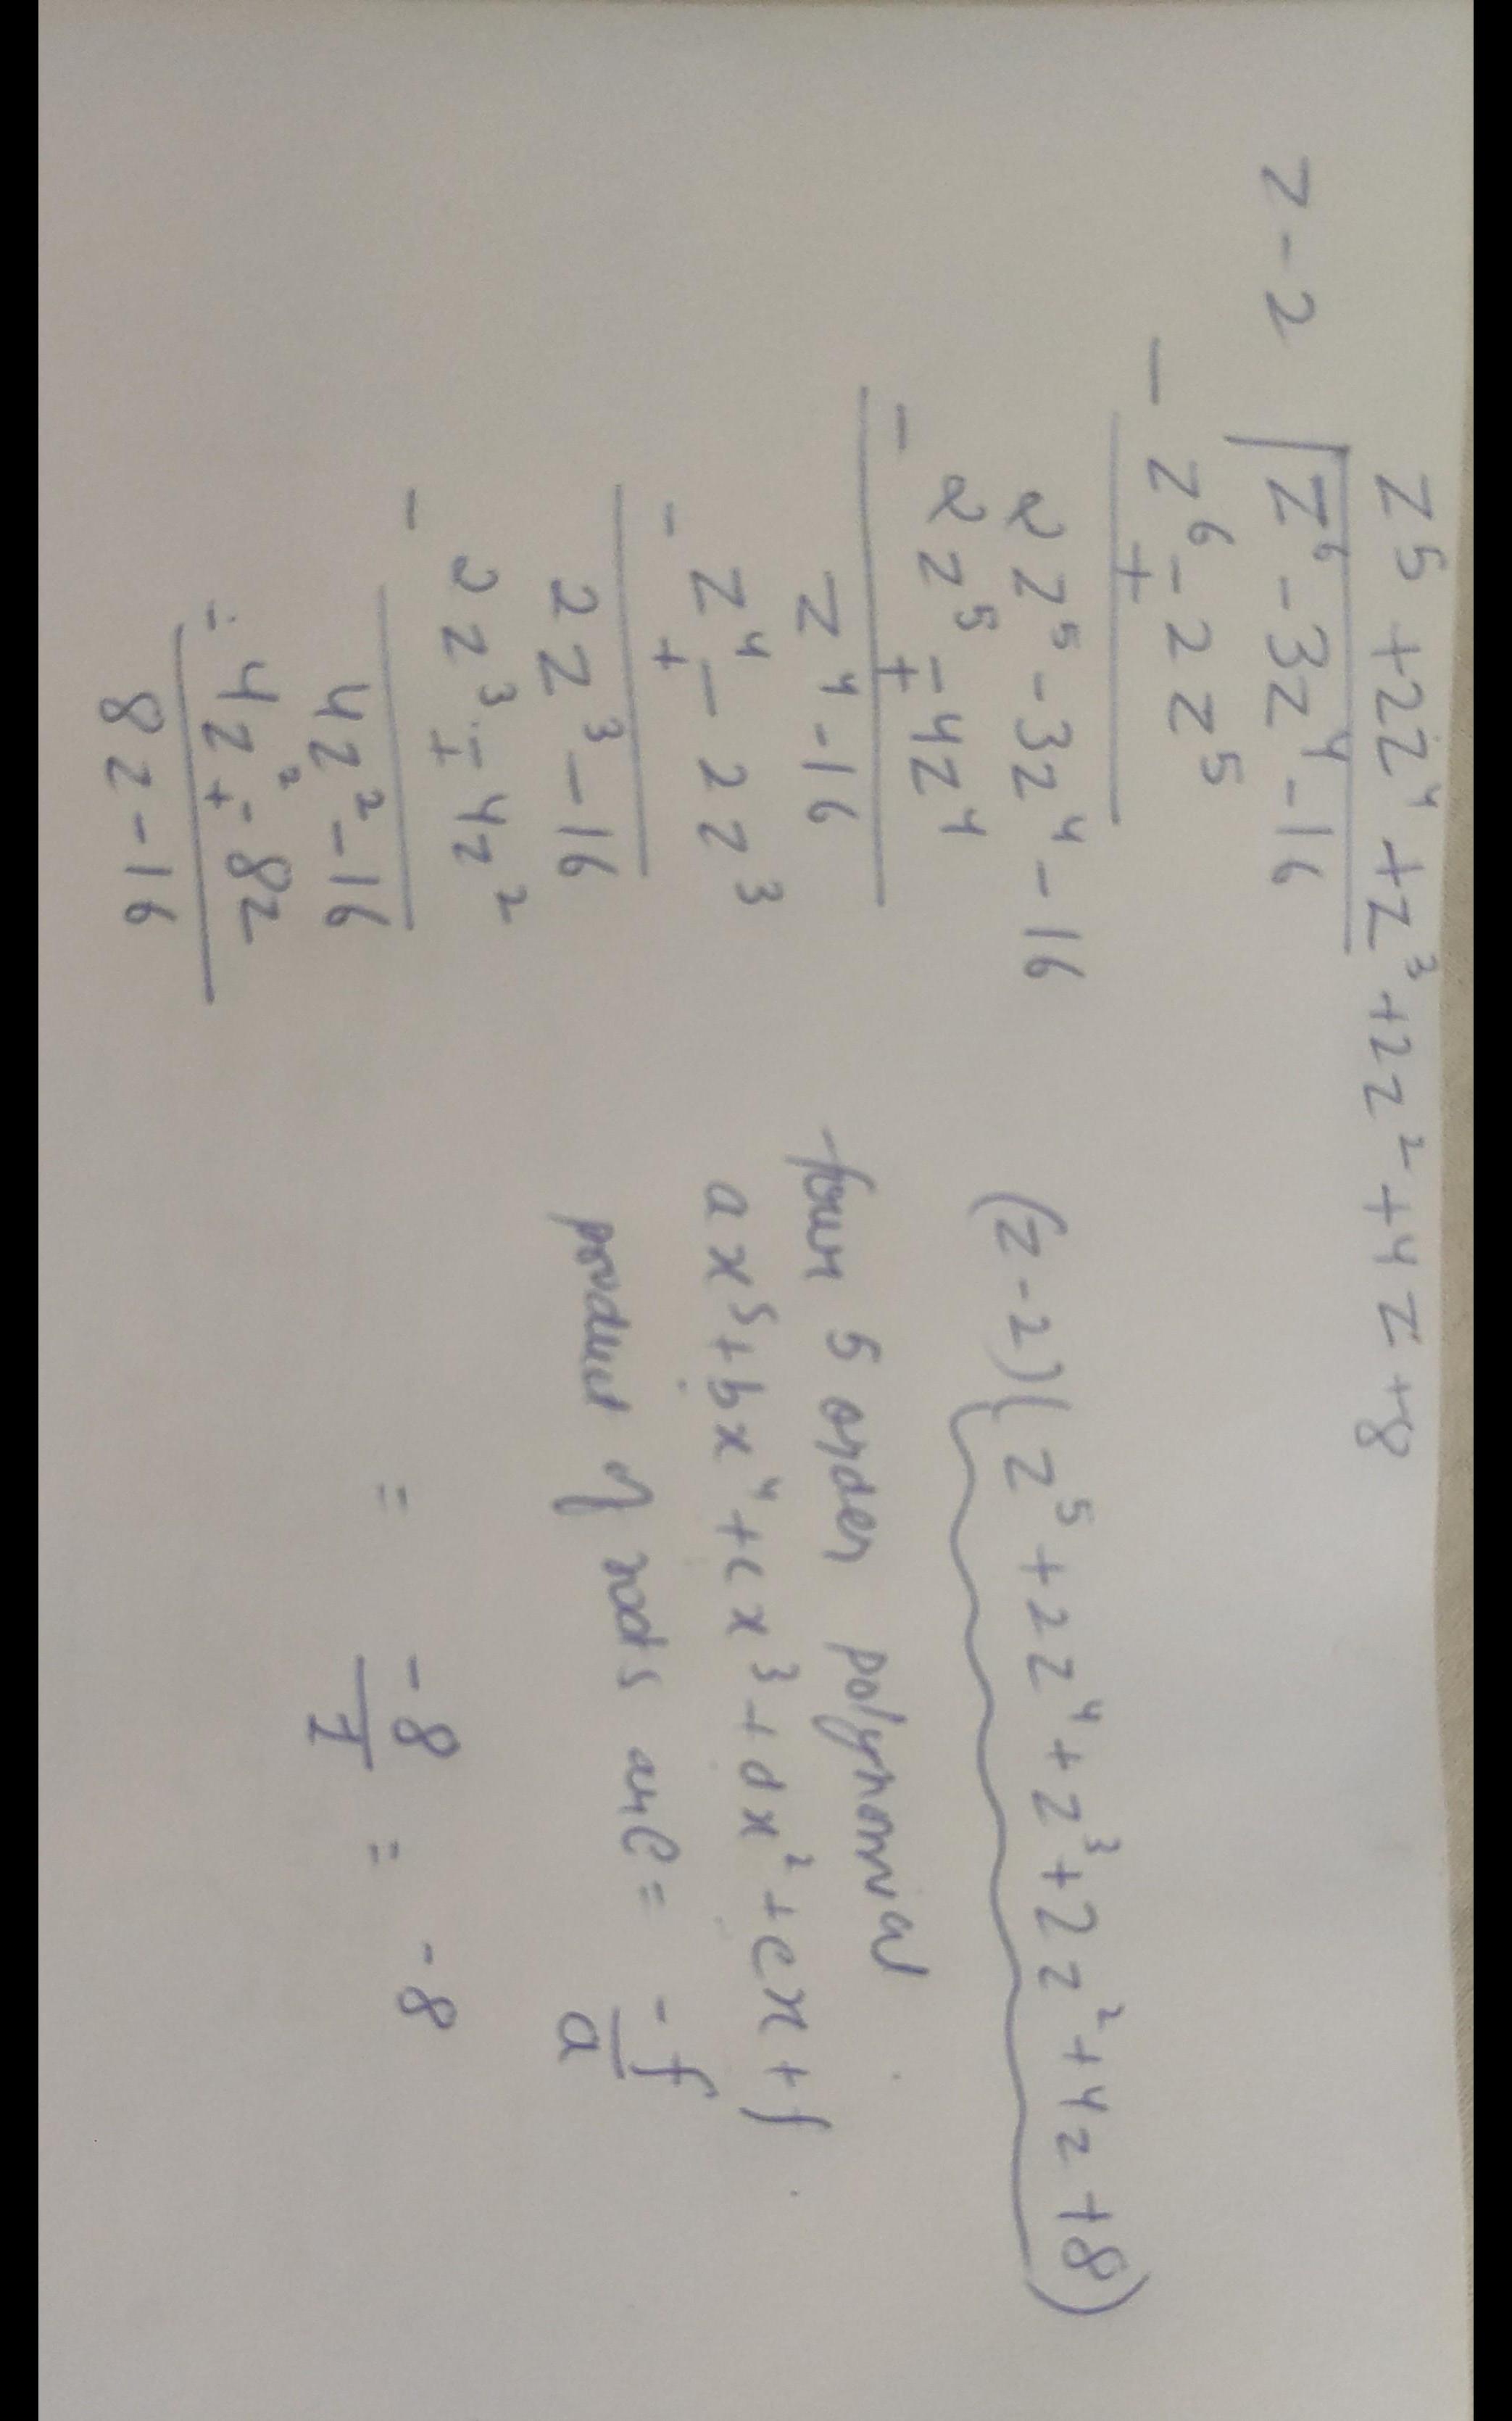 z⁵ + 2z⁴ + z³ + 2z² + 4z + 8
z - 2 | z⁶ - 3z⁴ - 16
- z⁶ - 2z⁵
+
2z⁵ - 3z⁴ - 16
2z⁵ - 4z⁴
- +
z⁴ - 16
z⁴ - 2z³
- +
2z³ - 16
2z³ - 4z²
- +
4z² - 16
4z² - 8z
- +
8z - 16
(z - 2) (z⁵ + 2z⁴ + z³ + 2z² + 4z + 8)
four 5 order polynomial
ax⁵ + bx⁴ + cx³ + dx² + ex + f
product of roots are = -f/a
= -8/1 = -8